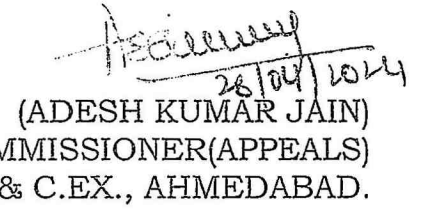 28/04/2024
(ADESH KUMAR JAIN)
MMISSIONER(APPEALS)
& C.EX., AHMEDABAD.